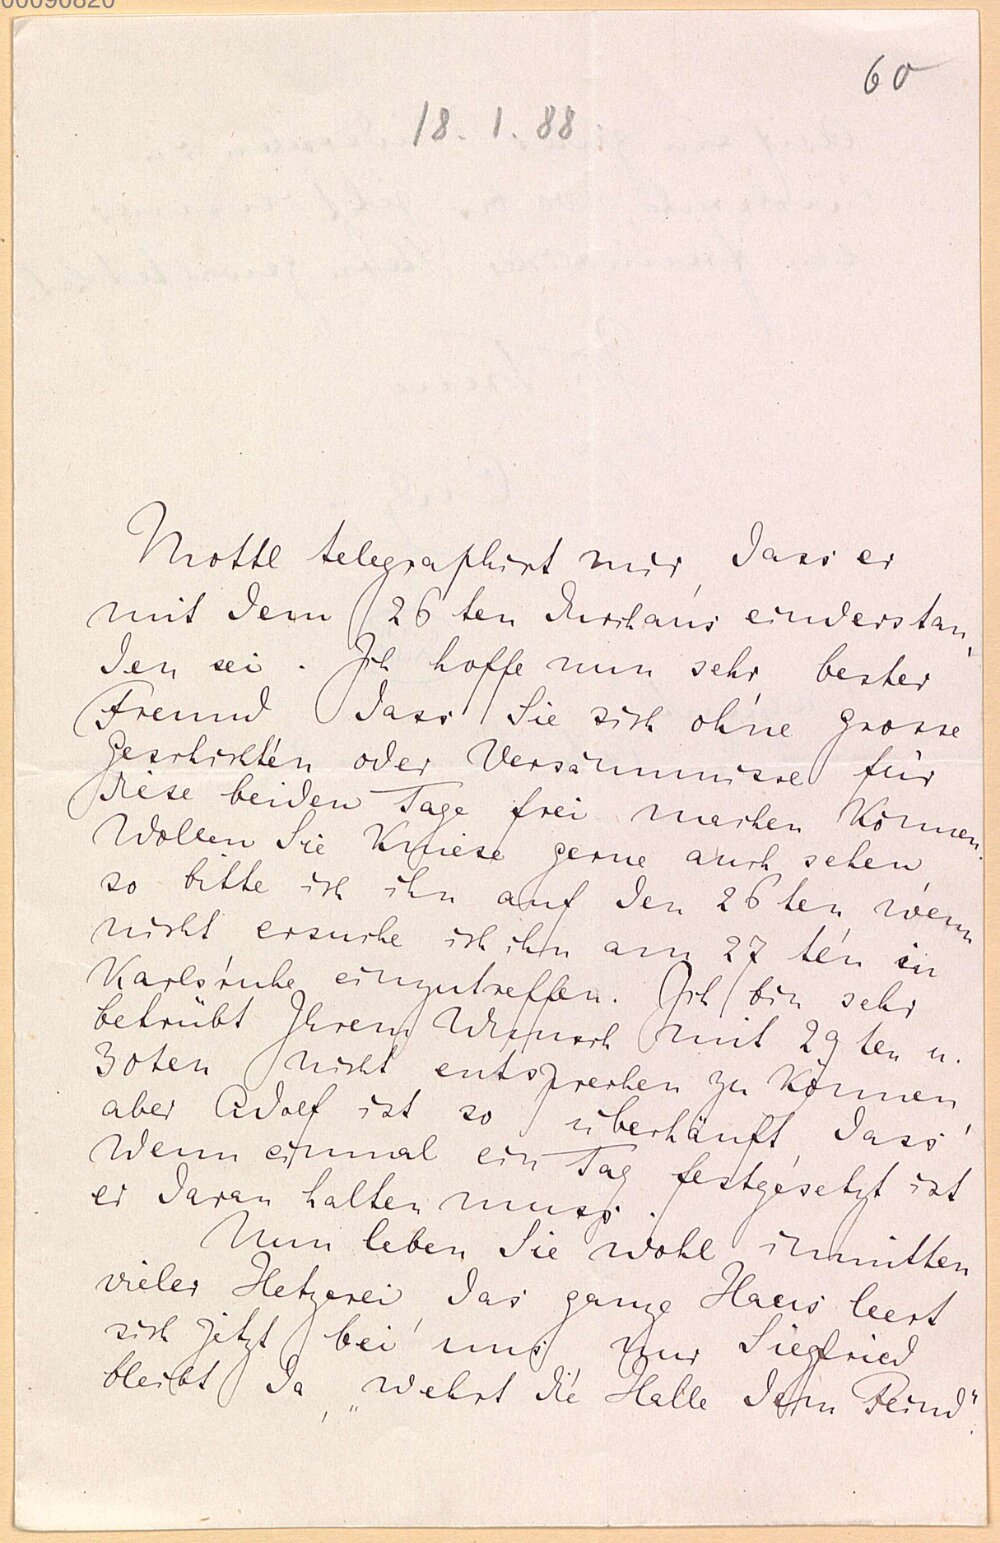 00090820
60
18. 1. 88
Mottl telegraphirt mir, dass er
mit dem 26ten durchaus einverstan
den sei. Ich hoffe nun sehr, bester
Freund dass Sie sich ohne grosse
Geschichten oder Versäumnisse für
diese beiden Tage frei machen können.
Wollen Sie Kniese gerne auch sehen,
so bitte ich ihn auf den 26ten, wenn
nicht ersuche ich ihn am 27ten in
Karlsruhe einzutreffen. Ich bin sehr
betrübt Ihrem Wunsch mit 29ten u.
30ten nicht entsprechen zu können,
aber Adolf ist so überhäuft, dass
wenn einmal ein Tag festgesetzt ist
er daran halten muss.
Nun leben Sie wohl inmitten
vieler Hetzerei, das ganze Haus leert
sich jetzt bei uns, nur Siegfried
bleibt da, „wehrt die Halle dem Feind".